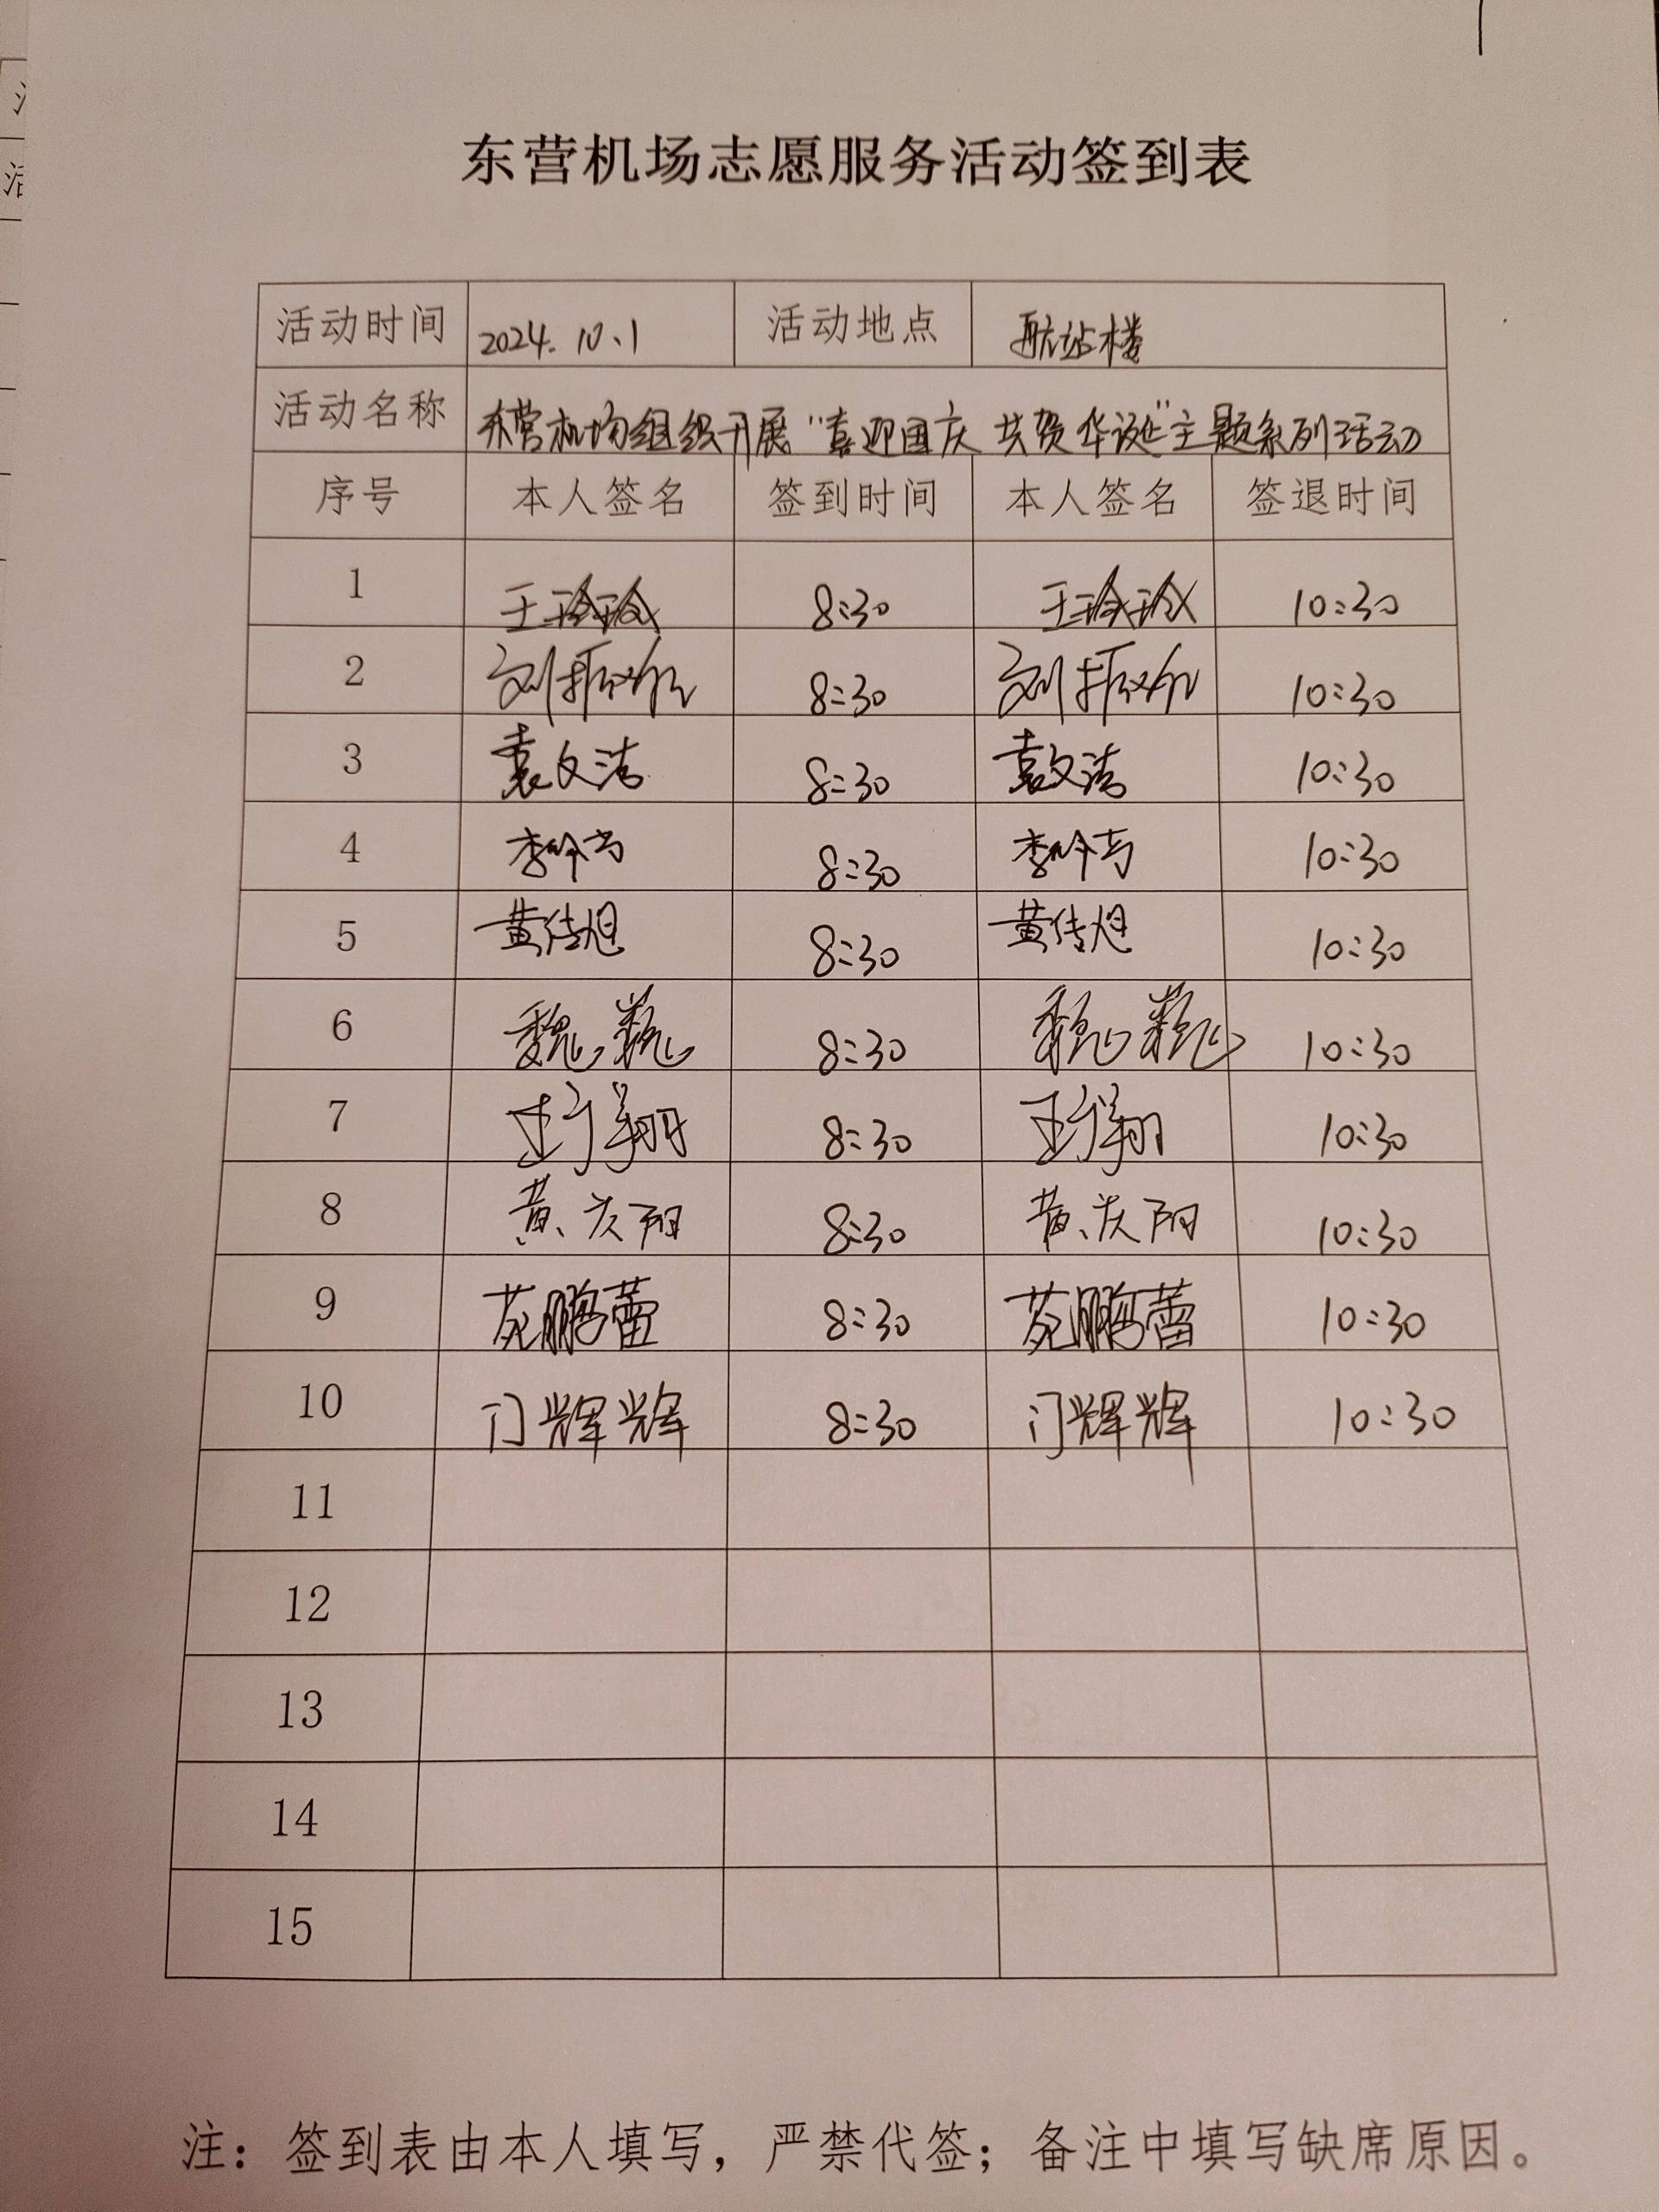 东营机场志愿服务活动签到表
活动时间 2024.10.1 活动地点 航站楼
活动名称 东营机场组织开展“喜迎国庆 共贺华诞”主题系列活动
序号 本人签名 签到时间 本人签名 签退时间
1 王玲玲 8:30 王玲玲 10:30
2 刘振 8:30 刘振 10:30
3 袁文洁 8:30 袁文洁 10:30
4 李 8:30 李 10:30
5 黄传旭 8:30 黄传旭 10:30
6 魏巍 8:30 魏巍 10:30
7 王宇翔 8:30 王宇翔 10:30
8 黄庆阳 8:30 黄庆阳 10:30
9 苑鹏蕾 8:30 苑鹏蕾 10:30
10 门辉辉 8:30 门辉辉 10:30
11
12
13
14
15
注：签到表由本人填写，严禁代签；备注中填写缺席原因。